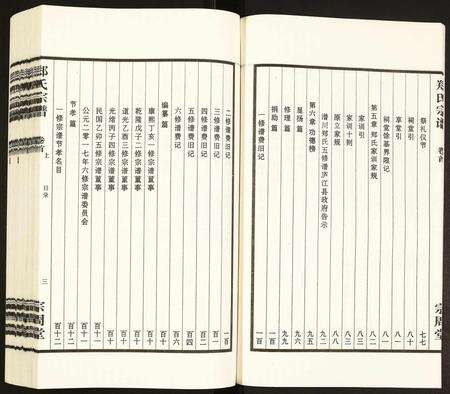 郑氏宗谱 卷首
祭礼仪节 七七
祠堂引 八十
享堂引 八一
祠堂馀基界限记 八一
第五章 郑氏家训家规 八二
家训引 八三
家训十则 八三
原立家规 八八
潜川郑氏五修谱庐江县政府告示 九五
第六章 功德榜 九六
显扬篇 九六
修理篇 九九
捐助篇 一百
一修谱费旧记 一百
宗周堂
二修谱费旧记 一百
三修谱费旧记 百一
四修谱费旧记 百二
五修谱费旧记 百四
六修谱费旧记 百六
编纂篇 百十
康熙丁亥一修宗谱董事 百十
乾隆戊子二修宗谱董事 百十
道光乙酉三修宗谱董事 百十
光绪丙子四修宗谱董事 百十
民国乙卯五修宗谱董事 百十一
公元二零一七年六修宗谱委员会 百十一
节孝篇 百十二
一修宗谱节孝名目 百十二
郑氏宗谱 卷首 上 目录 三 宗周堂